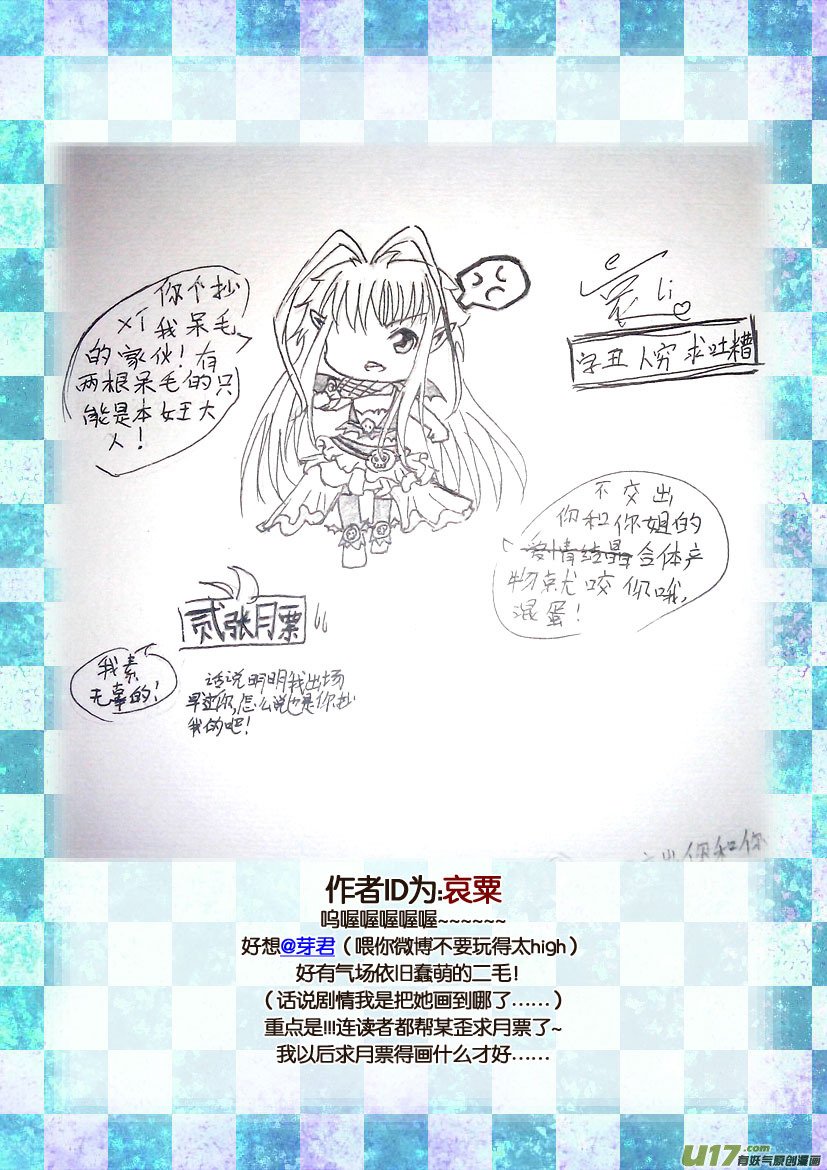 你个抄
×了我呆毛
的家伙！有
两根呆毛的只
能是本女王大
人！
e
哀 li
字丑 人穷 求吐糟
不交出
你和你姐的
爱情结晶合体产
物就咬你哦，
混蛋！
贰张月票
我素
无辜的！
话说明明我出场
早过你，怎么说也是你抄
我的吧！
你和你
作者ID为:哀粟
呜喔喔喔喔喔~~~~~~
好想@芽君（喂你微博不要玩得太high）
好有气场依旧蠢萌的二毛！
（话说剧情我是把她画到哪了……）
重点是!!!连读者都帮某歪求月票了~
我以后求月票得画什么才好……
U17.com
有妖气原创漫画